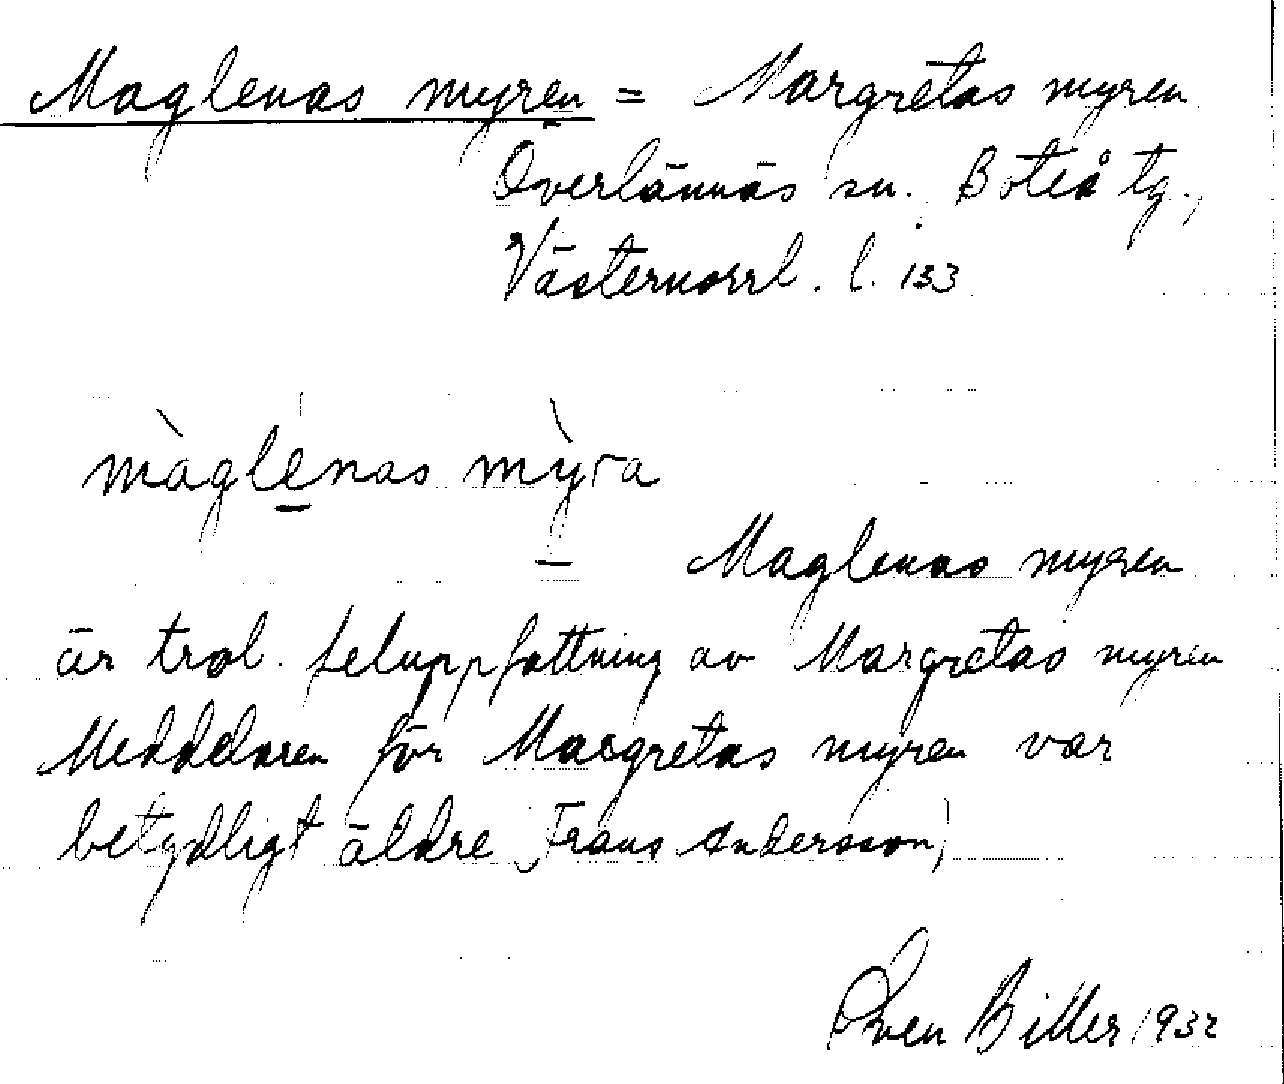 Maglenas myren = Margretas myren
Överlännäs sn. Boteå tg.,
Västernorrl. l. 133
màglenas mỳra
— Maglenas myren
är trol. feluppfattning av Margretas myren
Meddelaren för Margretas myren var
betydligt äldre (Frans Andersson)
Sven Biller 1932